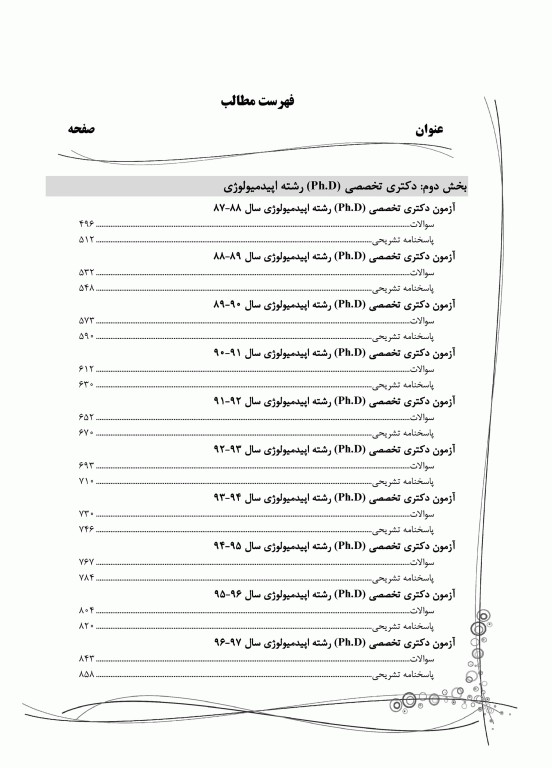 فهرست مطالب
عنوان صفحه
بخش دوم: دکتری تخصصی (Ph.D) رشته اپیدمیولوژی
آزمون دکتری تخصصی (Ph.D) رشته اپیدمیولوژی سال ۸۸-۸۷
سوالات ۴۹۶
پاسخنامه تشریحی ۵۱۲
آزمون دکتری تخصصی (Ph.D) رشته اپیدمیولوژی سال ۸۹-۸۸
سوالات ۵۳۲
پاسخنامه تشریحی ۵۴۸
آزمون دکتری تخصصی (Ph.D) رشته اپیدمیولوژی سال ۹۰-۸۹
سوالات ۵۷۳
پاسخنامه تشریحی ۵۹۰
آزمون دکتری تخصصی (Ph.D) رشته اپیدمیولوژی سال ۹۱-۹۰
سوالات ۶۱۲
پاسخنامه تشریحی ۶۳۰
آزمون دکتری تخصصی (Ph.D) رشته اپیدمیولوژی سال ۹۲-۹۱
سوالات ۶۵۲
پاسخنامه تشریحی ۶۷۰
آزمون دکتری تخصصی (Ph.D) رشته اپیدمیولوژی سال ۹۳-۹۲
سوالات ۶۹۳
پاسخنامه تشریحی ۷۱۰
آزمون دکتری تخصصی (Ph.D) رشته اپیدمیولوژی سال ۹۴-۹۳
سوالات ۷۳۰
پاسخنامه تشریحی ۷۴۶
آزمون دکتری تخصصی (Ph.D) رشته اپیدمیولوژی سال ۹۵-۹۴
سوالات ۷۶۷
پاسخنامه تشریحی ۷۸۴
آزمون دکتری تخصصی (Ph.D) رشته اپیدمیولوژی سال ۹۶-۹۵
سوالات ۸۰۴
پاسخنامه تشریحی ۸۲۰
آزمون دکتری تخصصی (Ph.D) رشته اپیدمیولوژی سال ۹۷-۹۶
سوالات ۸۴۳
پاسخنامه تشریحی ۸۵۸